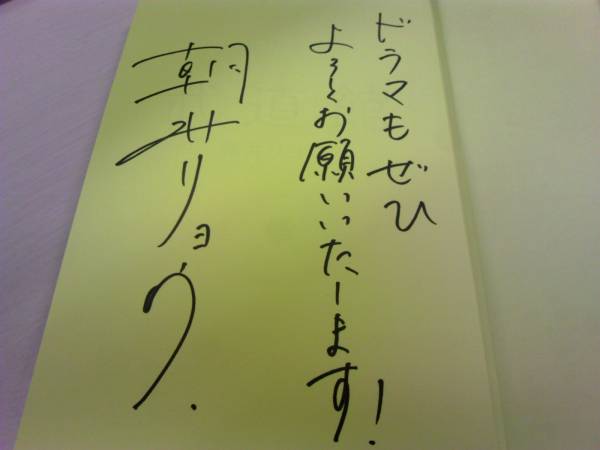 ドラマもぜひ
よろしくお願いいたします!
朝井リョウ.